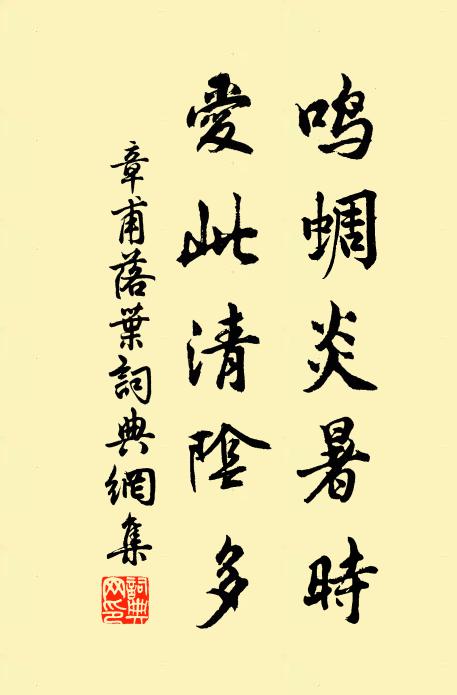 鸣蜩炎暑時
愛此清陰多
章甫落葉詞典網集
詞典
网印